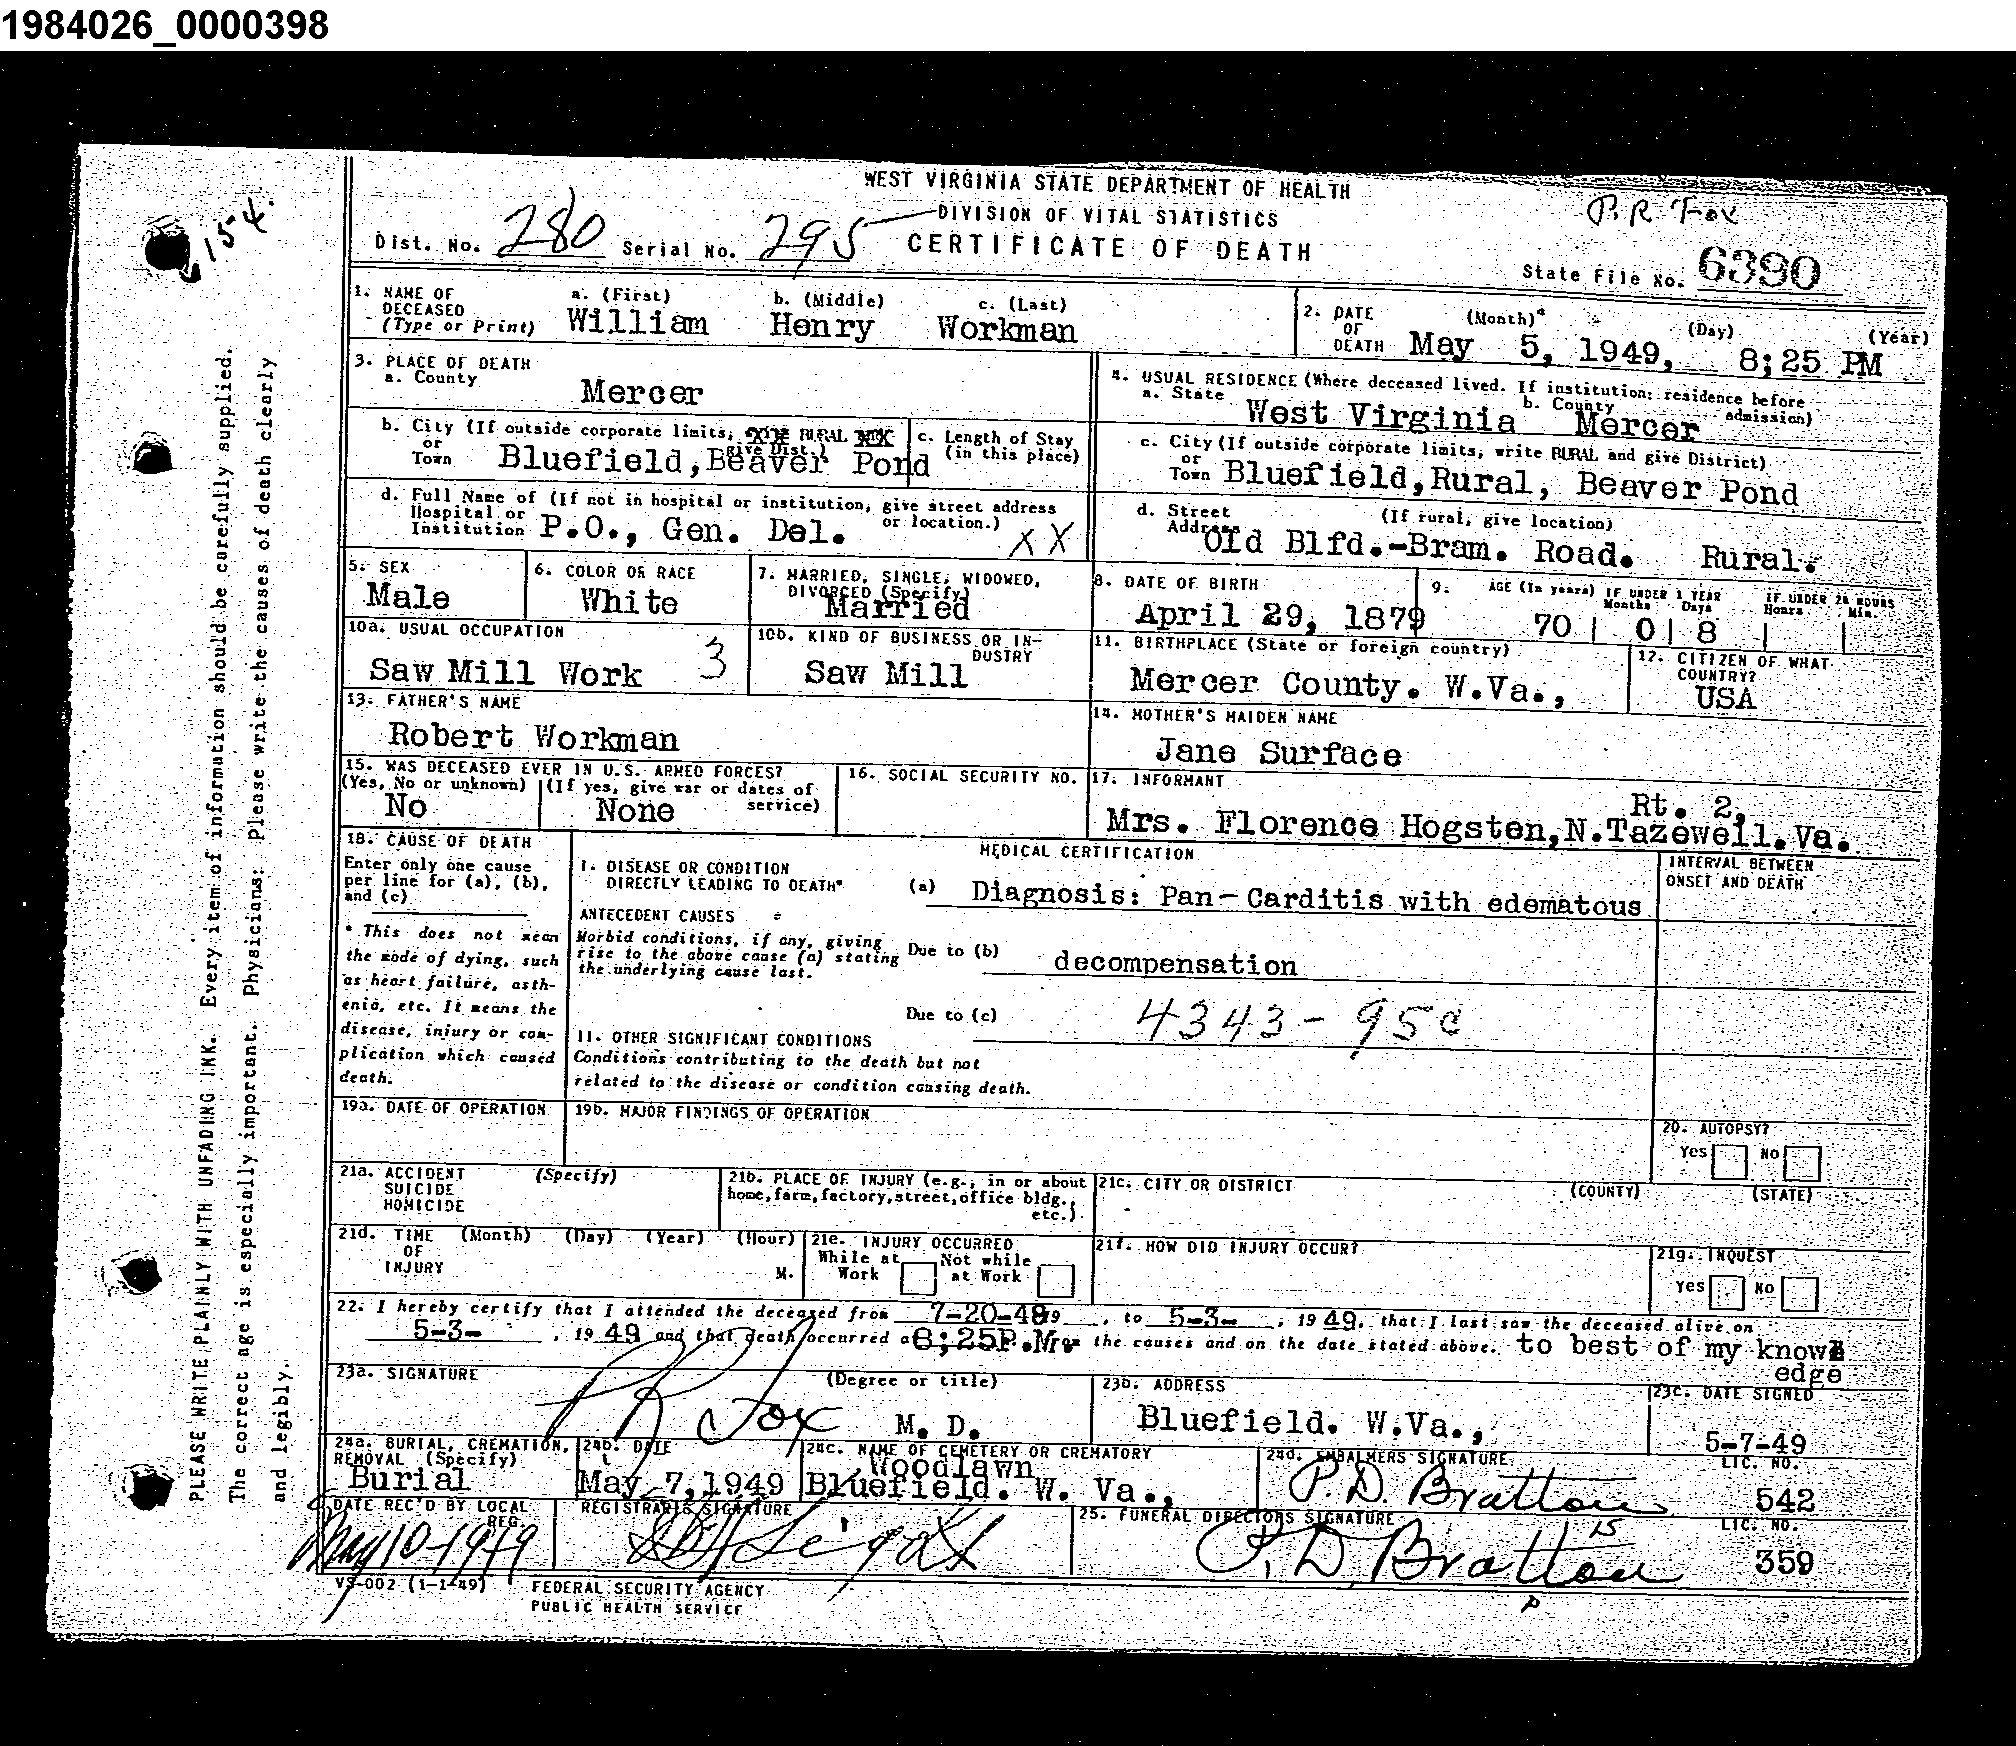 1984026_0000398
154.
WEST VIRGINIA STATE DEPARTMENT OF HEALTH
DIVISION OF VITAL STATISTICS
CERTIFICATE OF DEATH
P.R Fox
Dist. No. 280 Serial No. 295
State File No. 6390
1. NAME OF DECEASED (Type or Print) a. (First) William b. (Middle) Henry c. (Last) Workman
2. DATE OF DEATH (Month) (Day) (Year) May 5, 1949, 8;25 PM
3. PLACE OF DEATH
a. County Mercer
4. USUAL RESIDENCE (Where deceased lived. If institution: residence before admission)
a. State West Virginia b. County Mercer
b. City (If outside corporate limits, RURAL give Dist.)
or Town Bluefield, Beaver Pond
c. Length of Stay (in this place)
c. City (If outside corporate limits, write RURAL and give District)
or Town Bluefield,Rural, Beaver Pond
d. Full Name of (If not in hospital or institution, give street address or location.)
Hospital or Institution P.O., Gen. Del. XX
d. Street Address (If rural, give location)
Old Blfd.-Bram. Road. Rural.
5. SEX Male
6. COLOR OR RACE White
7. MARRIED, SINGLE, WIDOWED, DIVORCED (Specify) Married
8. DATE OF BIRTH April 29, 1879
9. AGE (In years) 70 IF UNDER 1 YEAR Months 0 Days 8 IF UNDER 24 HOURS Hours Min.
10a. USUAL OCCUPATION Saw Mill Work 3
10b. KIND OF BUSINESS OR INDUSTRY Saw Mill
11. BIRTHPLACE (State or foreign country) Mercer County. W.Va.,
12. CITIZEN OF WHAT COUNTRY? USA
13. FATHER'S NAME Robert Workman
14. MOTHER'S MAIDEN NAME Jane Surface
15. WAS DECEASED EVER IN U.S. ARMED FORCES?
(Yes, No or unknown) No (If yes, give war or dates of service) None
16. SOCIAL SECURITY NO.
17. INFORMANT
Rt. 2,
Mrs. Florence Hogsten,N.Tazewell.Va.
18. CAUSE OF DEATH
Enter only one cause per line for (a), (b), and (c)
* This does not mean the mode of dying, such as heart failure, asthenia, etc. It means the disease, injury or complication which caused death.
MEDICAL CERTIFICATION
INTERVAL BETWEEN ONSET AND DEATH
I. DISEASE OR CONDITION DIRECTLY LEADING TO DEATH*
(a) Diagnosis: Pan-Carditis with edematous
ANTECEDENT CAUSES
Morbid conditions, if any, giving rise to the above cause (a) stating the underlying cause last.
Due to (b) decompensation
Due to (c) 4343-95c
II. OTHER SIGNIFICANT CONDITIONS
Conditions contributing to the death but not related to the disease or condition causing death.
19a. DATE OF OPERATION
19b. MAJOR FINDINGS OF OPERATION
20. AUTOPSY?
Yes No
21a. ACCIDENT SUICIDE HOMICIDE (Specify)
21b. PLACE OF INJURY (e.g., in or about home, farm, factory, street, office bldg., etc.)
21c. CITY OR DISTRICT (COUNTY) (STATE)
21d. TIME OF INJURY (Month) (Day) (Year) (Hour) M.
21e. INJURY OCCURRED
While at Work Not while at Work
21f. HOW DID INJURY OCCUR?
21g. INQUEST
Yes No
22. I hereby certify that I attended the deceased from 7-20-48, to 5-3-, 1949, that I last saw the deceased alive on
5-3-, 1949 and that death occurred at 8;25P.M. the causes and on the date stated above. to best of my knowledge
23a. SIGNATURE P R Fox (Degree or title) M. D.
23b. ADDRESS Bluefield. W.Va.,
23c. DATE SIGNED 5-7-49
24a. BURIAL, CREMATION, REMOVAL (Specify) Burial
24b. DATE May 7,1949
24c. NAME OF CEMETERY OR CREMATORY Woodlawn
Bluefield. W. Va.,
24d. EMBALMERS SIGNATURE P.D. Bratton LIC. NO. 542
DATE REC'D BY LOCAL REG. May 10-1949
REGISTRAR'S SIGNATURE
25. FUNERAL DIRECTORS SIGNATURE P.D. Bratton LIC. NO. 359
VS-002 (1-1-49)
FEDERAL SECURITY AGENCY
PUBLIC HEALTH SERVICE
PLEASE WRITE PLAINLY WITH UNFADING INK. Every item of information should be carefully supplied.
The correct age is especially important. Physicians: Please write the causes of death clearly
and legibly.